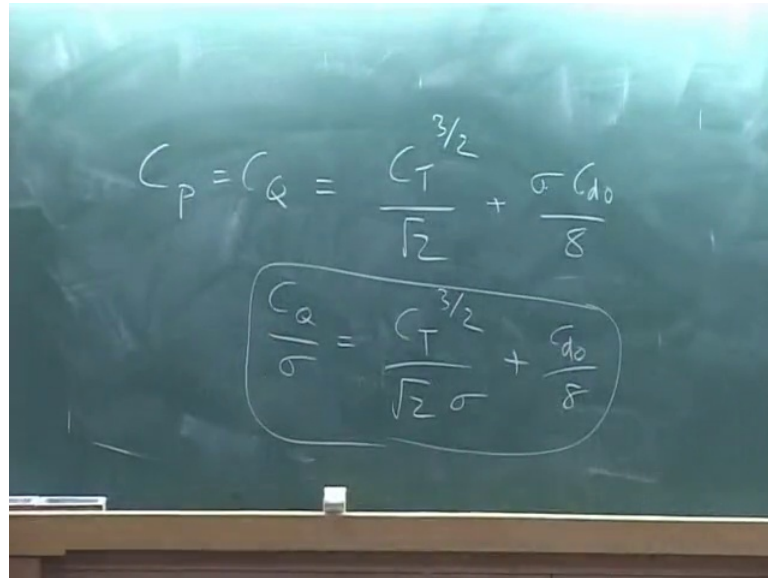 C_p = C_Q = C_T^{3/2}/√2 + σ C_{do}/8
C_Q/σ = C_T^{3/2}/(√2 σ) + C_{do}/8